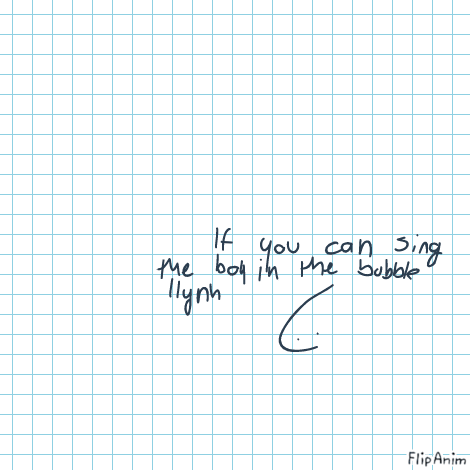 If you can sing
the boy in the bubble
llynh
FlipAnim